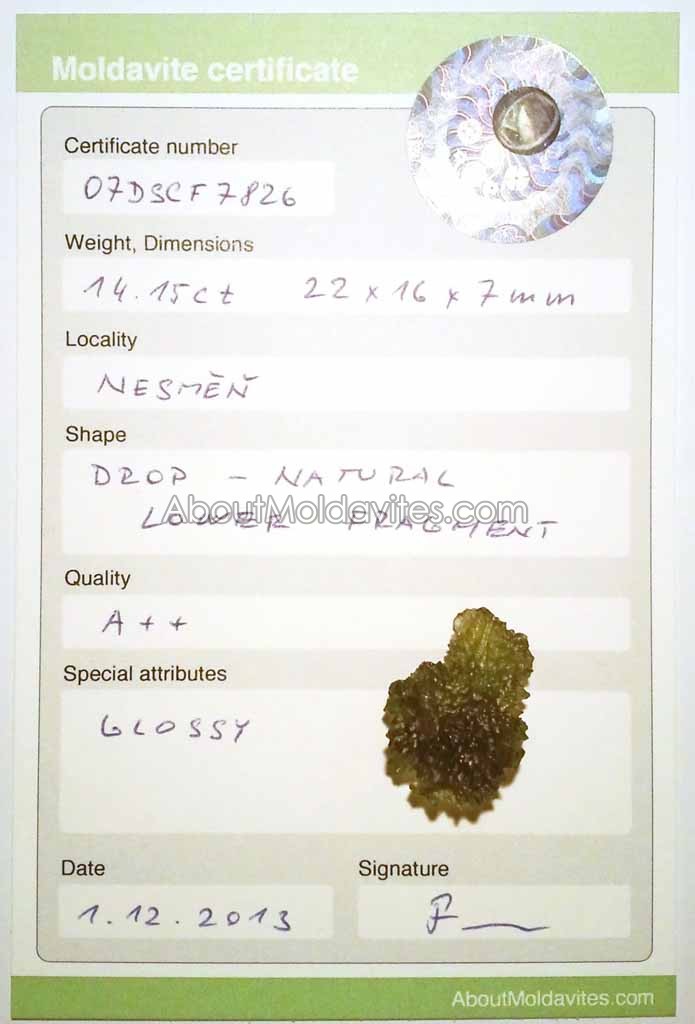 Moldavite certificate
Certificate number
07DSCF7826
Weight, Dimensions
14.15ct 22 x 16 x 7 mm
Locality
NESMĚŇ
Shape
DROP - NATURAL
LOWER FRAGMENT
AboutMoldavites.com
Quality
A++
Special attributes
GLOSSY
Date
Signature
1.12.2013
AboutMoldavites.com